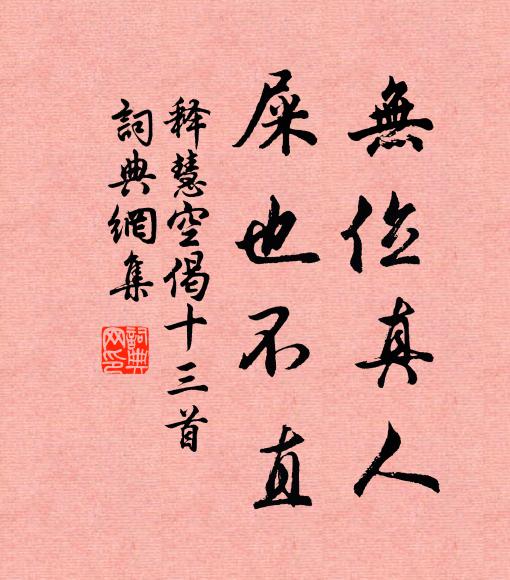 無位真人
屎也不直
释慧空偈十三首
詞典網集
詞典網印